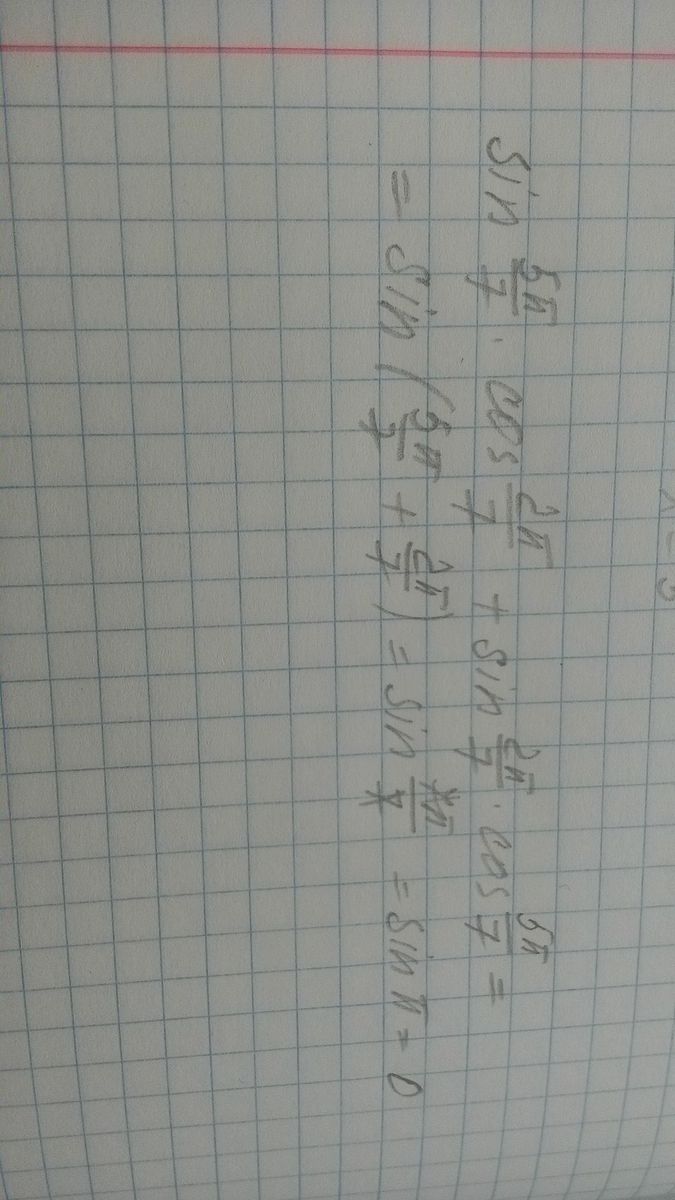 sin 5π/7 · cos 2π/7 + sin 2π/7 · cos 5π/7 =
= sin (5π/7 + 2π/7) = sin 7π/7 = sin π = 0